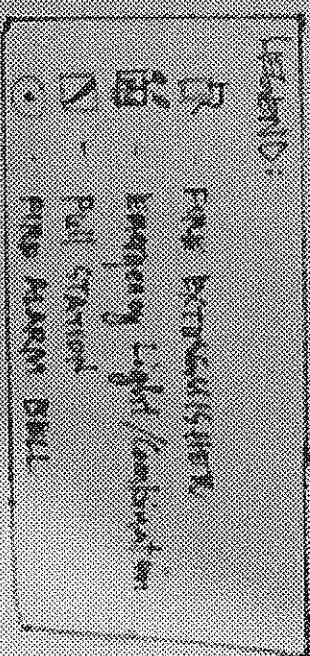 LEGEND:
- FIRE EXTINGUISHER
- Emergency Light/Combination
- Pull STATION
- FIRE ALARM BELL